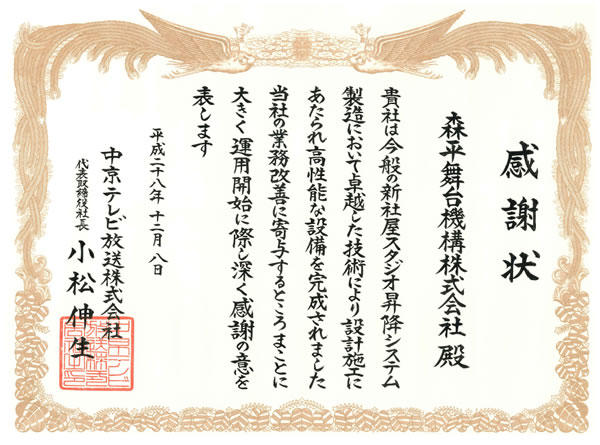 感謝状
森平舞台機構株式会社 殿
貴社は今般の新社屋スタジオ昇降システム
製造において卓越した技術により設計施工に
あたられ高性能な設備を完成されました
当社の業務改善に寄与するところまことに
大きく運用開始に際し深く感謝の意を
表します
平成二十八年 十二月 八日
中京テレビ放送株式会社
代表取締役社長 小松伸生